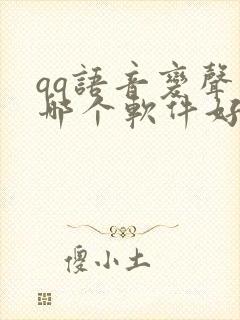 qq語音褒聲
哪个軟件好
傻小土